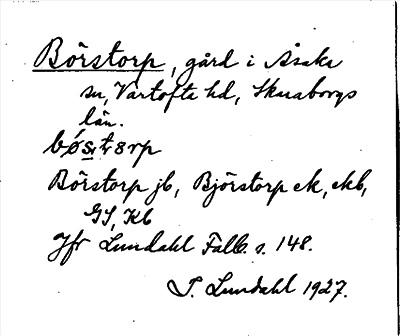 Börstorp, gård i Åsaka
sn, Vartofta hd, Skaraborgs
län.
Börstorp jb, Bjórstorp ek, ekb,
GS, Kb
Jfr Lundahl Falb. s. 148.
I. Lundahl 1927.